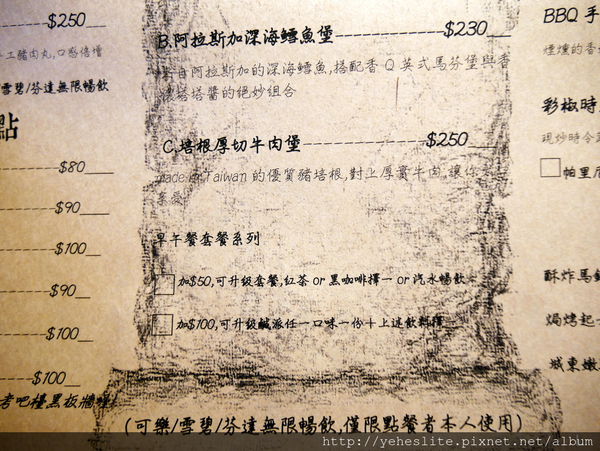 $250
工豬肉丸,口感倍增
雪碧/芬達無限暢飲
點
$80
$90
$100
$90
$100
$100
考吧檯黑板牆
B.阿拉斯加深海鱈魚堡 $230
自阿拉斯加的深海鱈魚,搭配香Q英式馬芬堡與香
塔塔醬的絕妙組合
C.培根厚切牛肉堡 $250
made in Taiwan 的優質豬培根,對上厚實牛肉,讓你
享受
早午餐套餐系列
加$50,可升級套餐,紅茶 or 黑咖啡擇一 or 汽水暢飲
加$100,可升級鹹派任一口味一份+上述飲料擇一
(可樂/雪碧/芬達無限暢飲,僅限點餐者本人使用)
BBQ 手
煙燻的香
彩椒時
現炒時令
帕里尼
酥炸馬鈴
焗烤起
城東嫩
http://yeheslite.pixnet.net/album